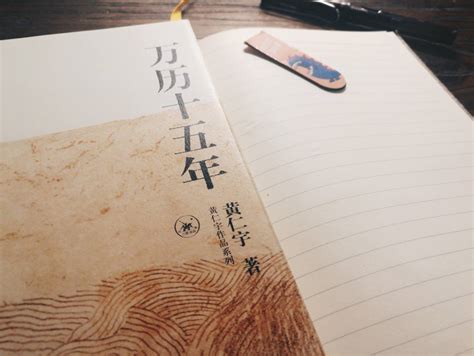 万历十五年
黄仁宇 著
黄仁宇作品系列